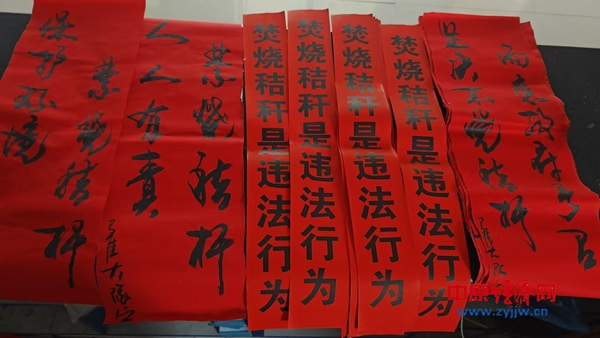 禁烧秸秆
保护环境
禁烧秸秆
人人有责
焚烧秸秆是违法行为
焚烧秸秆是违法行为
焚烧秸秆是违法行为
焚烧秸秆是违法行为
响应政府号召
坚决不烧秸秆
中原经济网
www.zyjjw.cn